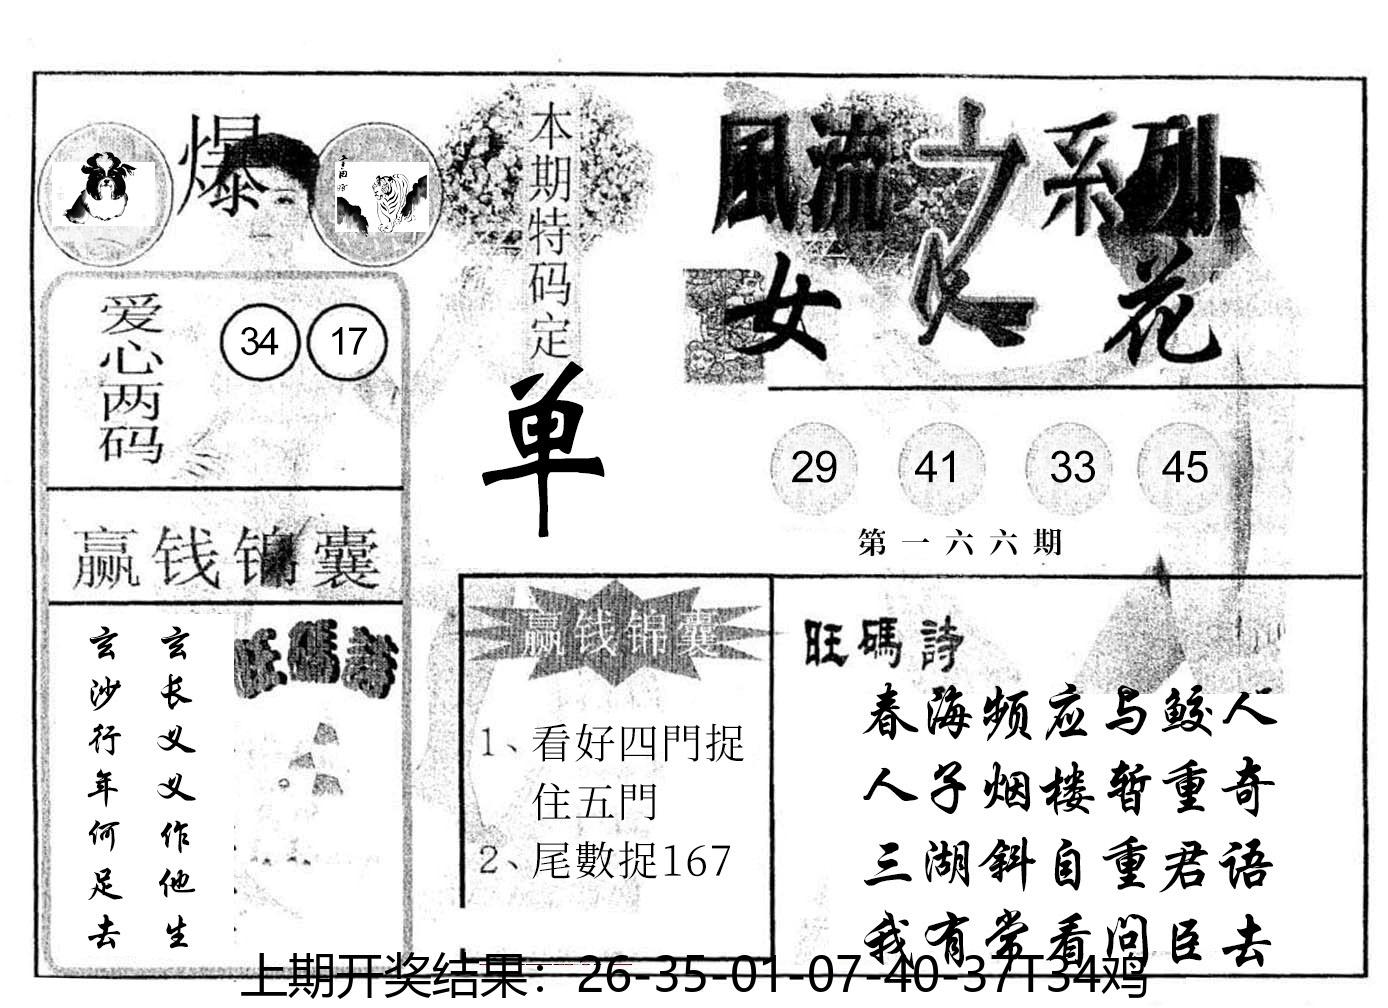 爆
爱心两码
34 17
赢钱锦囊
玄长义义作他生
玄沙行年何足去
旺碼詩
本期特码定
单
赢钱锦囊
1、看好四門捉
住五門
2、尾數捉167
風流之系列
女人花
29 41 33 45
第一六六期
旺碼詩
春海频应与鲛人
人子烟楼暂重奇
三湖斜自重君语
我有常看问臣去
上期开奖结果：26-35-01-07-40-37T34鸡